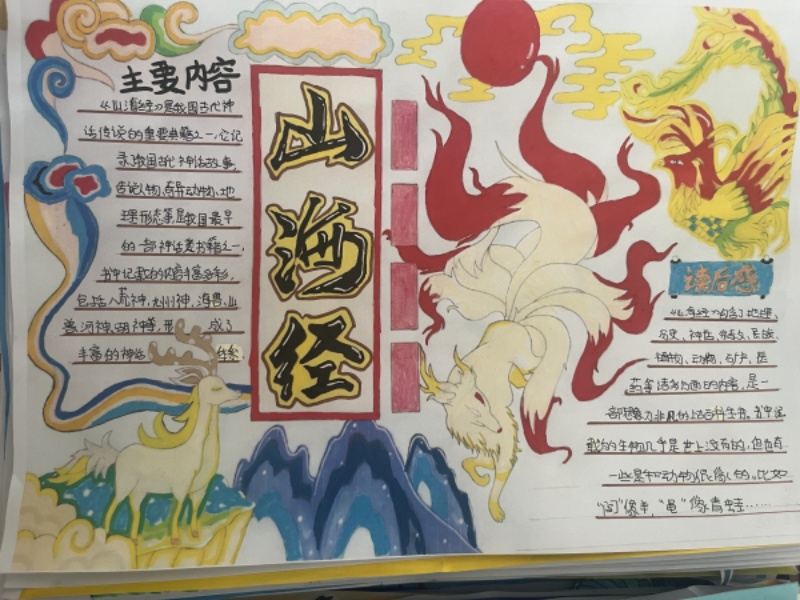 主要内容
《山海经》是我国古代神
话传说的重要典籍之一,它记
录我国古代神话故事,
传说人物、奇异动物、地
理形态等是我国最早
的一部神话类书籍之一,
书中记载的内容丰富多彩,
包括八荒神,水川神,海兽,山
兽河神,湖神等,形 成了
丰富的神话 体系.
山海经
读后感
《山海经》内含了地理,
历史、神话、宗教、民族、
植物、动物、矿产、医
药等诸多方面的内容,是一
部魅力非凡的上古百科全书。书中记
载的生物几乎是世上没有的,但也有
一些是和动物很像的。比如
像羊,"黾"像青蛙……